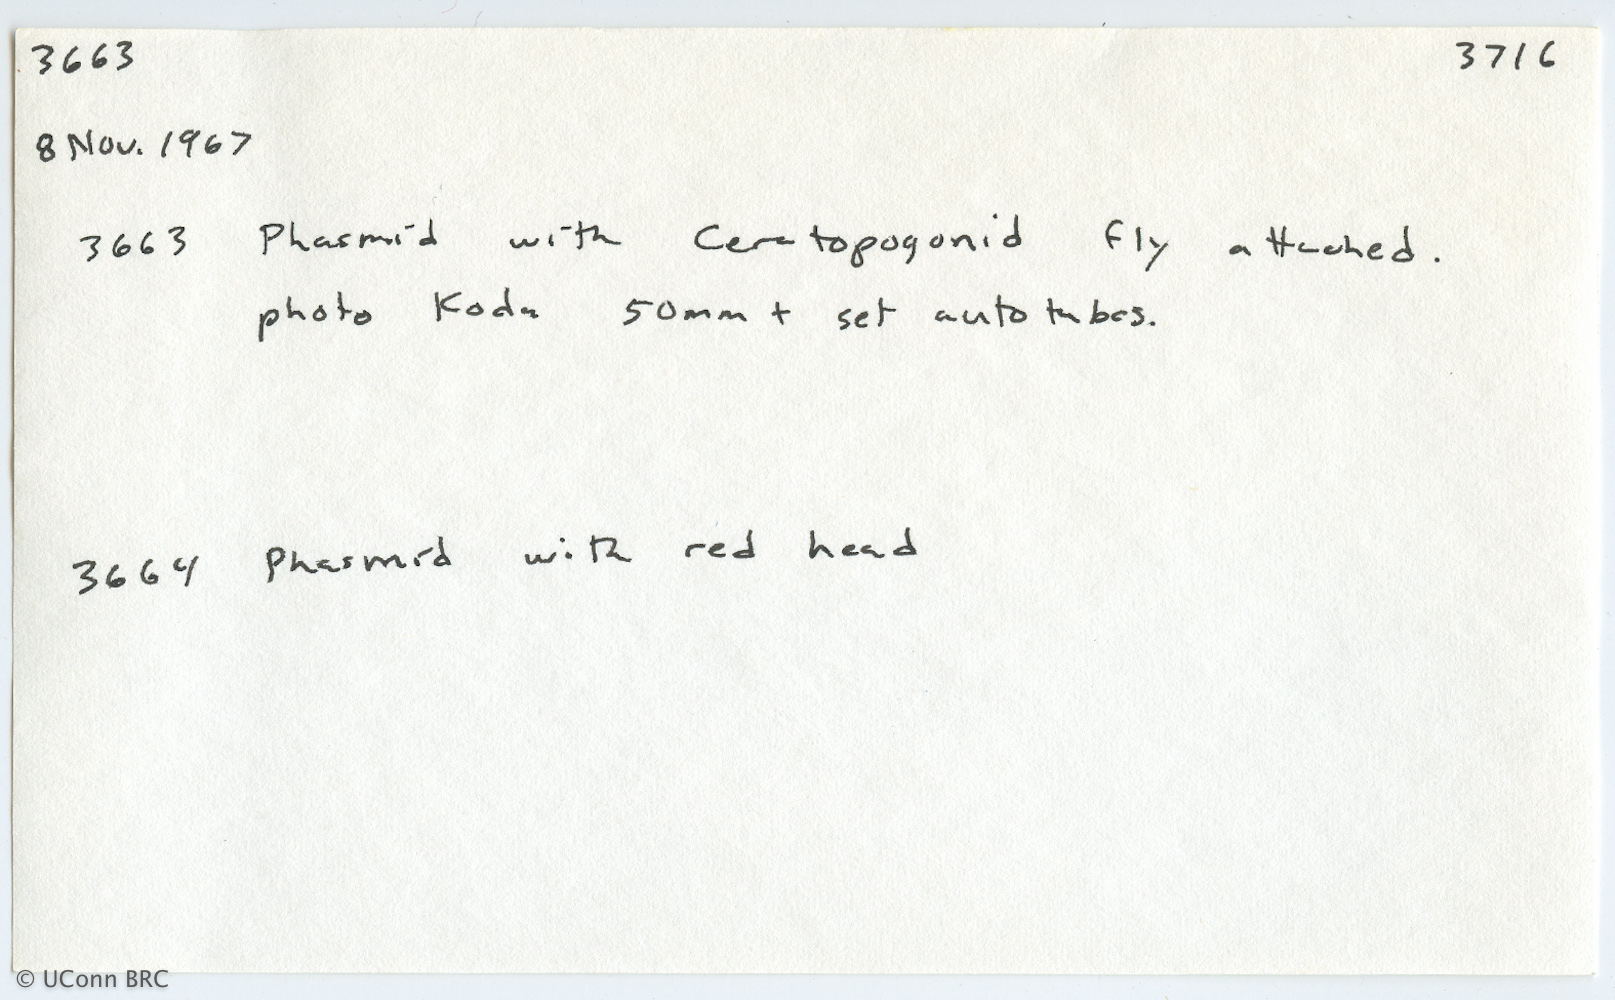 3663 3716
8 Nov. 1967
3663 Phasmid with Ceratopogonid fly attached.
photo Koda 50mm + set auto tubes.
3664 Phasmid with red head
© UConn BRC